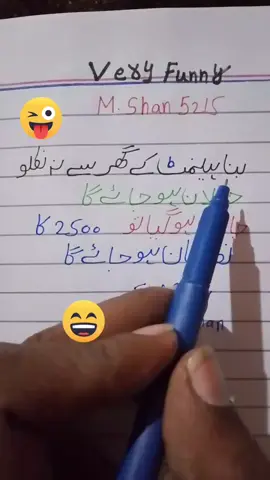 Very Funny
M. Shan 5215
بنا ہیلمٹ کے گھر سے نہ نکلو
چالان ہو جائے گا
ہو گیا تو 2500 کا
نقصان ہو جائے گا